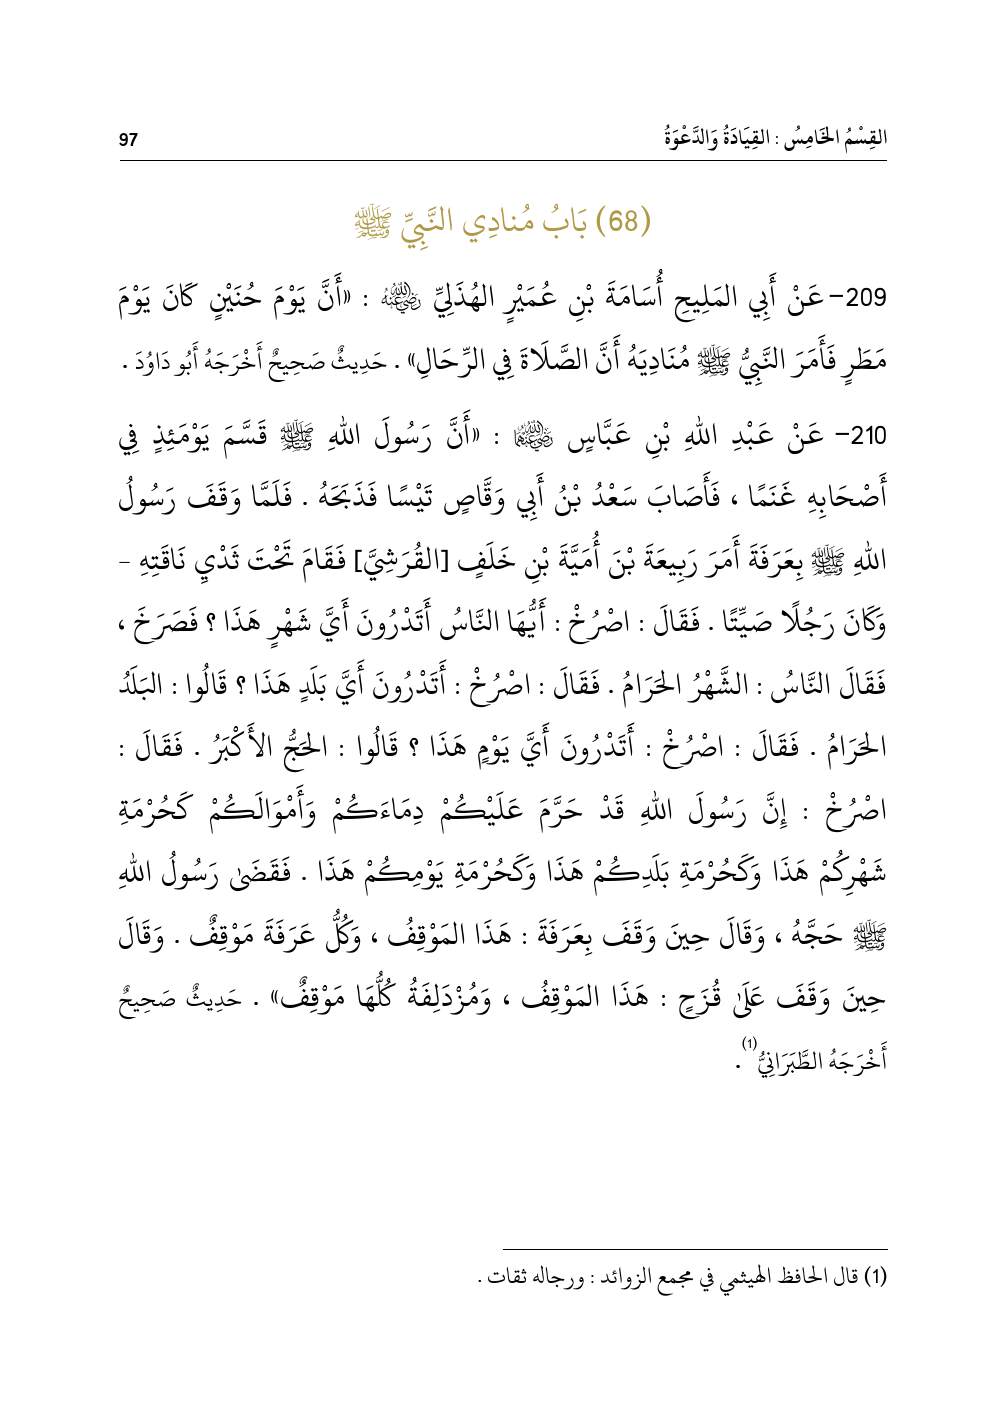 القِسْمُ الخَامِسُ : القِيَادَةُ وَالدَّعْوَةُ 97
(68) بَابُ مُنادِي النَّبِيِّ ﷺ
209- عَنْ أَبِي المَلِيحِ أُسَامَةَ بْنِ عُمَيْرٍ الهُذَلِيِّ رَضِيَ اللهُ عَنْهُ : «أَنَّ يَوْمَ حُنَيْنٍ كَانَ يَوْمَ
مَطَرٍ فَأَمَرَ النَّبِيُّ ﷺ مُنَادِيَهُ أَنَّ الصَّلَاةَ فِي الرِّحَالِ» . حَدِيثٌ صَحِيحٌ أَخْرَجَهُ أَبُو دَاوُدَ .
210- عَنْ عَبْدِ اللهِ بْنِ عَبَّاسٍ رَضِيَ اللهُ عَنْهُمَا : «أَنَّ رَسُولَ اللهِ ﷺ قَسَّمَ يَوْمَئِذٍ فِي
أَصْحَابِهِ غَنَمًا ، فَأَصَابَ سَعْدُ بْنُ أَبِي وَقَّاصٍ تَيْسًا فَذَبَحَهُ . فَلَمَّا وَقَفَ رَسُولُ
اللهِ ﷺ بِعَرَفَةَ أَمَرَ رَبِيعَةَ بْنَ أُمَيَّةَ بْنِ خَلَفٍ [القُرَشِيَّ] فَقَامَ تَحْتَ ثَدْيِ نَاقَتِهِ –
وَكَانَ رَجُلًا صَيِّتًا . فَقَالَ : اصْرُخْ : أَيُّهَا النَّاسُ أَتَدْرُونَ أَيَّ شَهْرٍ هَذَا ؟ فَصَرَخَ ،
فَقَالَ النَّاسُ : الشَّهْرُ الحَرَامُ . فَقَالَ : اصْرُخْ : أَتَدْرُونَ أَيَّ بَلَدٍ هَذَا ؟ قَالُوا : البَلَدُ
الحَرَامُ . فَقَالَ : اصْرُخْ : أَتَدْرُونَ أَيَّ يَوْمٍ هَذَا ؟ قَالُوا : الحَجُّ الأَكْبَرُ . فَقَالَ :
اصْرُخْ : إِنَّ رَسُولَ اللهِ قَدْ حَرَّمَ عَلَيْكُمْ دِمَاءَكُمْ وَأَمْوَالَكُمْ كَحُرْمَةِ
شَهْرِكُمْ هَذَا وَكَحُرْمَةِ بَلَدِكُمْ هَذَا وَكَحُرْمَةِ يَوْمِكُمْ هَذَا . فَقَضَىٰ رَسُولُ اللهِ
ﷺ حَجَّهُ ، وَقَالَ حِينَ وَقَفَ بِعَرَفَةَ : هَذَا المَوْقِفُ ، وَكُلُّ عَرَفَةَ مَوْقِفٌ . وَقَالَ
حِينَ وَقَفَ عَلَىٰ قُزَحٍ : هَذَا المَوْقِفُ ، وَمُزْدَلِفَةُ كُلُّهَا مَوْقِفٌ» . حَدِيثٌ صَحِيحٌ
أَخْرَجَهُ الطَّبَرَانِيُّ(1) .
(1) قال الحافظ الهيثمي في مجمع الزوائد : ورجاله ثقات .